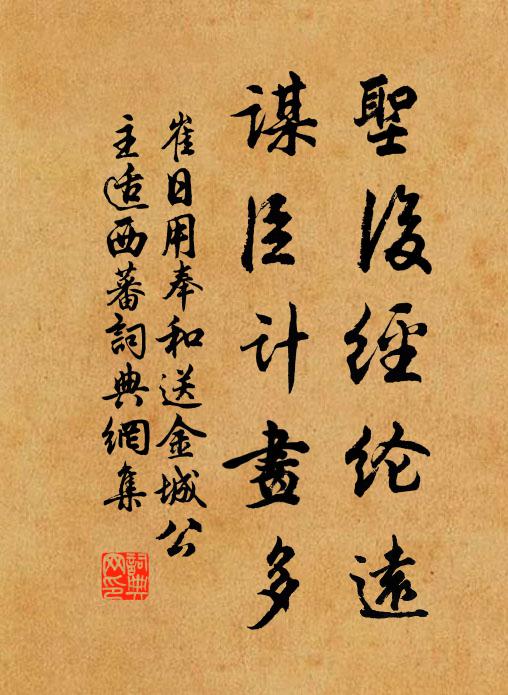 聖後經伦遠
謀臣计畫多
崔日用奉和送金城公
主适西蕃詞典網集
詞典网印